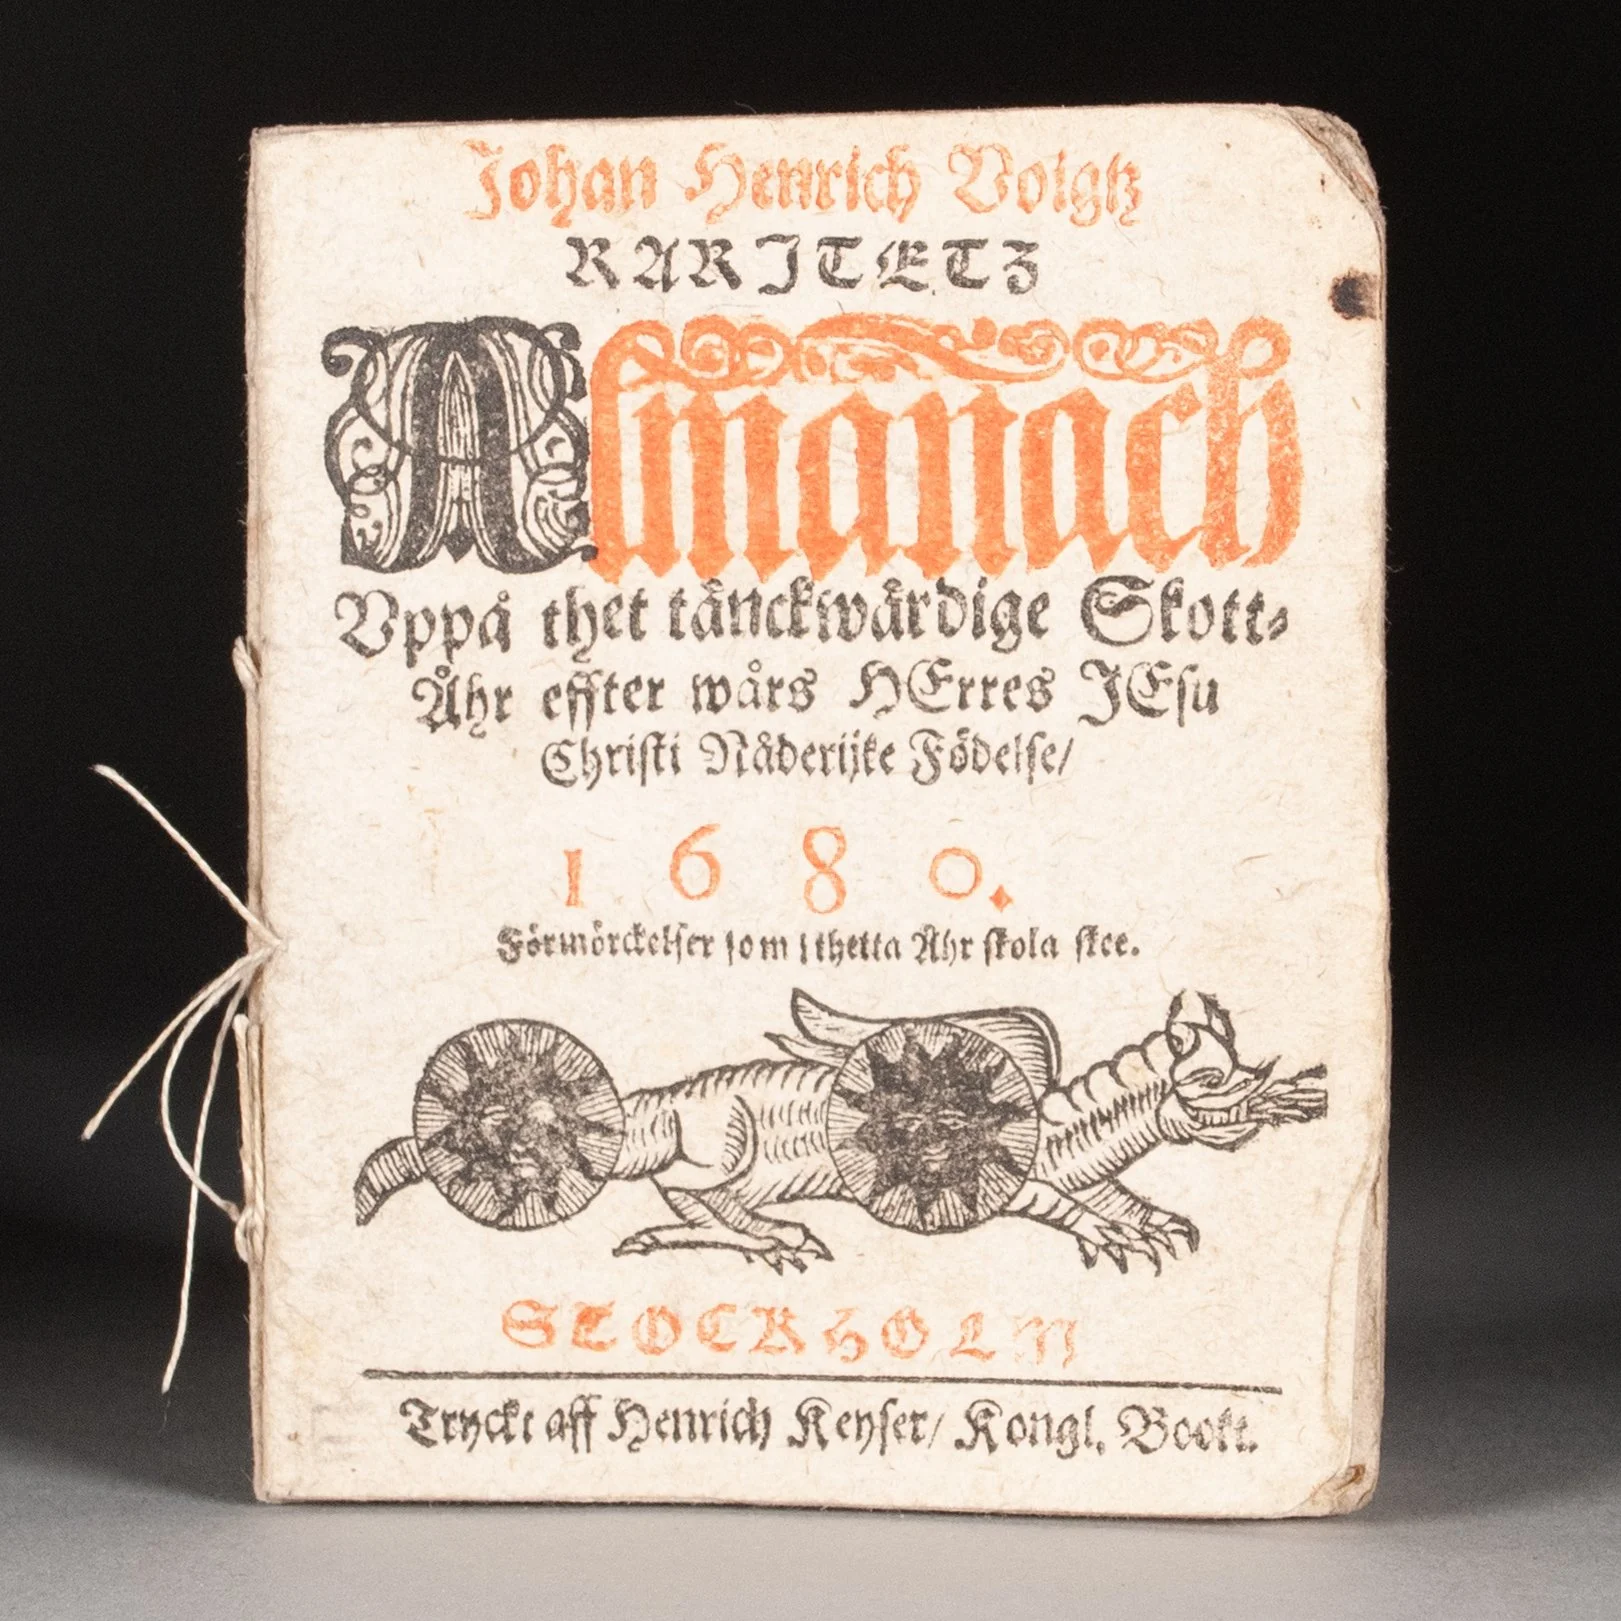 Johan Henrich Voigtz
RARITETZ
Almanach
Uppå thet tänckwärdige Skott-
Åhr effter wårs HErres JEsu
Christi Nåderijke Födelse/
1680.
Förmörckelser som i thetta Åhr skola skee.
STOCKHOLM
Tryckt aff Henrich Keyser/ Kongl. Bookt.